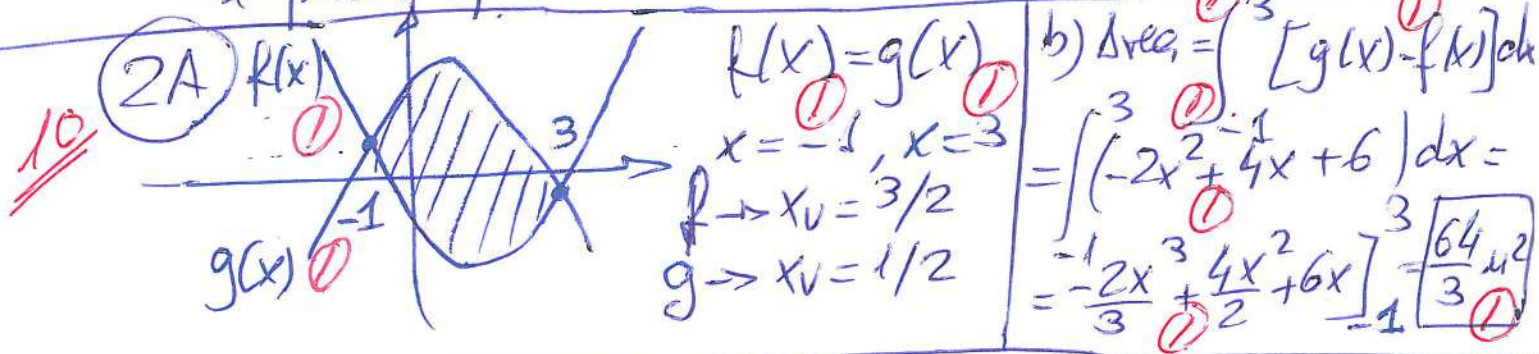 10
2A
f(x)
①
3
-1
g(x) ①
f(x) = g(x)
① ①
x = -1, x = 3
f → xv = 3/2
g → xv = 1/2
b) Area = ∫₋₁³ [g(x) - f(x)] dx
① ① ①
= ∫₋₁³ (-2x² + 4x + 6) dx =
①
= -2x³/3 + 4x²/2 + 6x ]₋₁³ = 64/3 u²
① ①